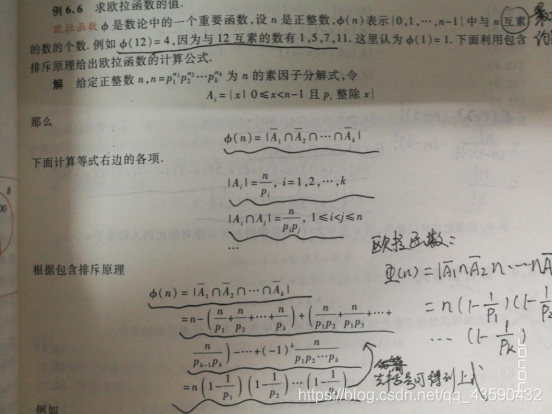 例6.6 求欧拉函数的值.
欧拉函数 ϕ 是数论中的一个重要函数,设 n 是正整数,ϕ(n)表示{0,1,…,n-1}中与 n 互素
的数的个数.例如 ϕ(12)=4,因为与 12 互素的数有 1,5,7,11.这里认为 ϕ(1)=1.下面利用包含
排斥原理给出欧拉函数的计算公式.
解 给定正整数 n,n=p₁^{α₁}p₂^{α₂}…p_k^{α_k} 为 n 的素因子分解式,令
A_i={x| 0≤x<n-1 且 p_i 整除 x}
那么
ϕ(n)=|Ā₁∩Ā₂∩…∩Ā_k|
下面计算等式右边的各项.
|A_i|=n/p_i, i=1,2,…,k
|A_i∩A_j|=n/(p_i p_j), 1≤i<j≤n
…
根据包含排斥原理
ϕ(n)=|Ā₁∩Ā₂∩…∩Ā_k|
=n-(n/p₁+n/p₂+…+n/p_k)+(n/(p₁p₂)+n/(p₁p₃)+…+
n/(p_{k-1}p_k))-…+(-1)^k n/(p₁p₂…p_k)
=n(1-1/p₁)(1-1/p₂)…(1-1/p_k)
例如
欧拉函数:
Φ(n)=|Ā₁∩Ā₂∩…∩Ā
=n(1-1/p₁)(1-1/p₂
…(1-1/p_k)
去括号可得到上式
https://blog.csdn.net/qq_43590432